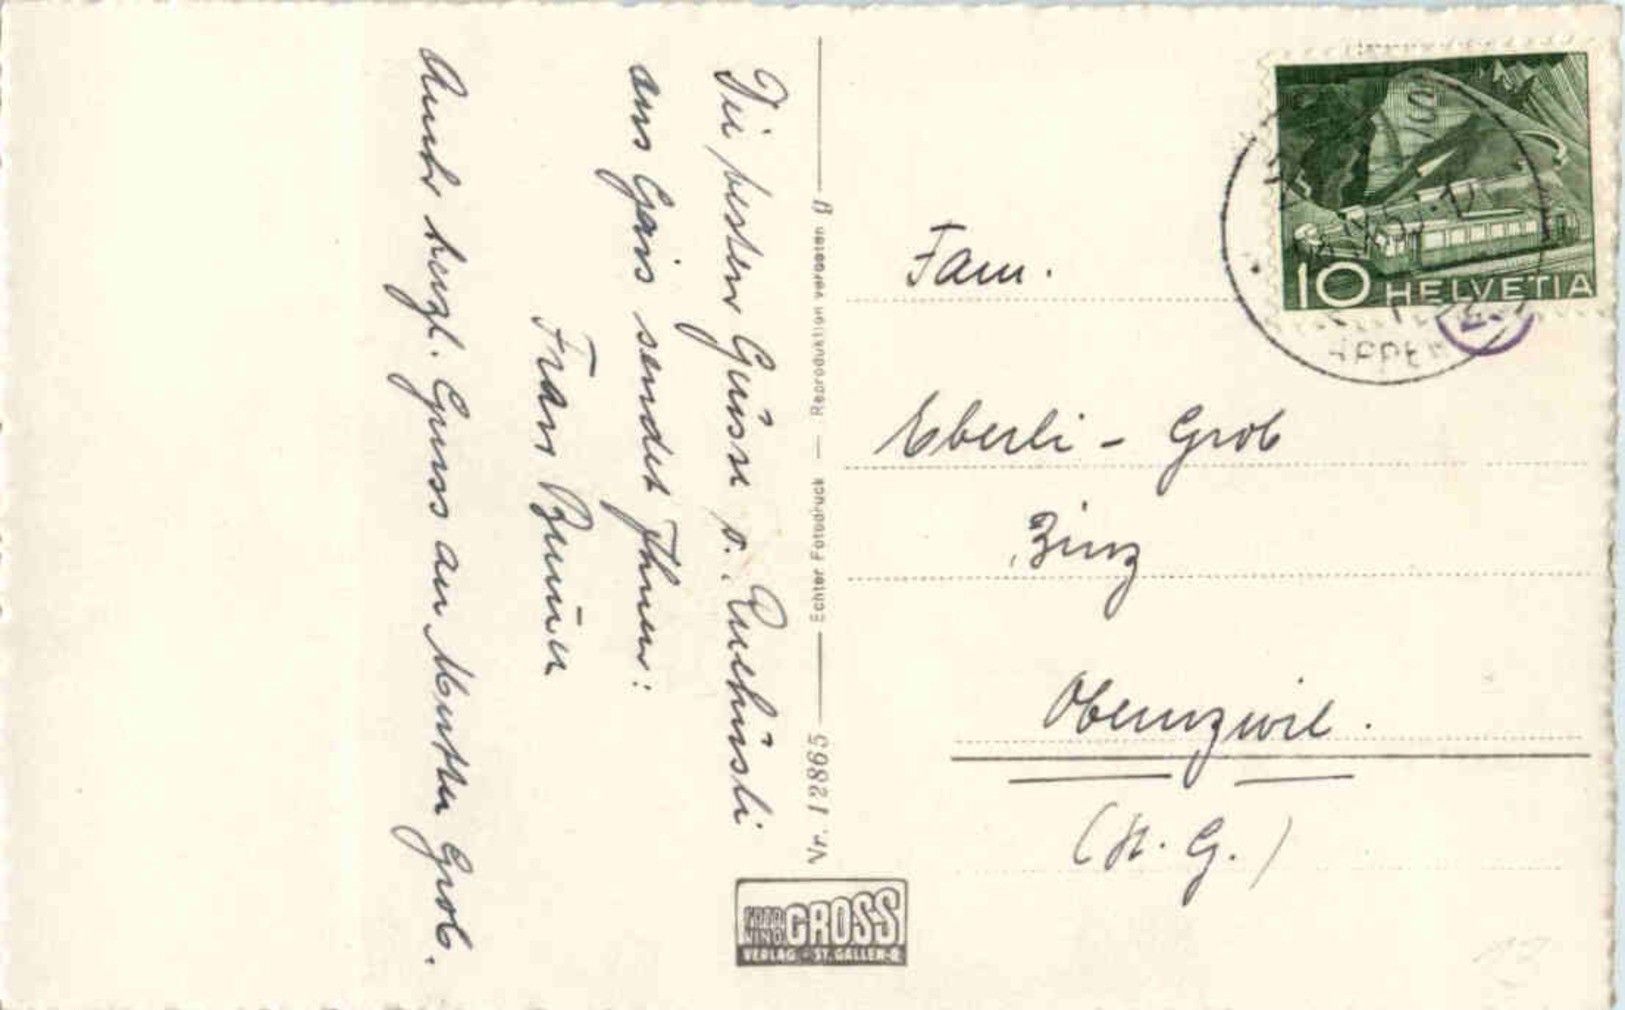 Die besten Grüsse v.
aus Gais sendet Ihnen:
Frau
Auch herzl. Gruss an Mutter Grob.
Nr. 12865 Echter Fotodruck — Reproduktion verboten
FOTO GROSS
VERLAG - ST. GALLEN
10 HELVETIA
Fam.
Eberli - Grob
Binz
Oberuzwil.
(St. G.)